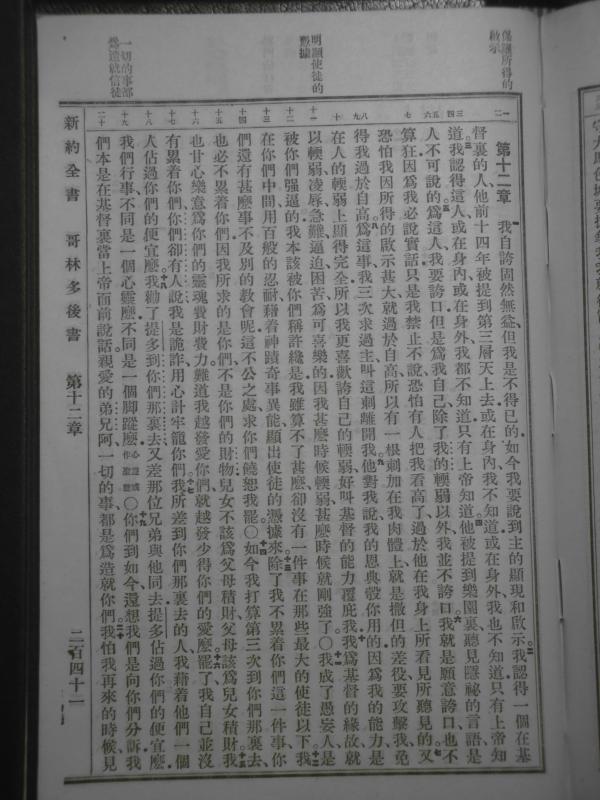 啟示
明顯使徒的
憑據
一切的事都
為造就信徒
第十二章 我自誇固然無益但我是不得已的如今我要說到主的顯現和啟示我認得一個在基
督裏的人他前十四年被提到第三層天上去或在身內我不知道或在身外我也不知道只有上帝知
道我認得這人或在身內或在身外我都不知道只有上帝知道他被提到樂園裏聽見隱祕的言語是
人不可說的為這人我要誇口但是為我自己除了我的輭弱以外我並不誇口我就是願意誇口也不
算狂因為我必說實話只是我禁止不說恐怕有人把我看高了過於他在我身上所看見所聽見的又
恐怕我因所得的啟示甚大就過於自高所以有一根刺加在我肉體上就是撒但的差役要攻擊我免
得我過於自高為這事我三次求過主叫這刺離開我他對我說我的恩典彀你用的因為我的能力是
在人的輭弱上顯得完全所以我更喜歡誇自己的輭弱好叫基督的能力覆庇我我為基督的緣故就
以輭弱凌辱急難逼迫困苦為可喜樂的因我甚麼時候輭弱甚麼時候就剛強了〇我成了愚妄人是
被你們強逼的我本該被你們稱許纔是我雖算不了甚麼卻沒有一件事在那些最大的使徒以下我
在你們中間用百般的忍耐藉着神蹟奇事異能顯出使徒的憑據來除了我不累着你們這一件事你
們還有甚麼事不及別的教會呢這不公之處求你們饒恕我罷〇如今我打算第三次到你們那裏去
也必不累着你們因我所求的是你們不是你們的財物兒女不該為父母積財父母該為兒女積財我
也甘心樂意為你們的靈魂費財費力難道我越發愛你們就越發少得你們的愛麼罷了我自己並沒
有累着你們你們卻有人說我是詭詐用心計牢籠你們我所差到你們那裏去的人我藉着他們一個
人佔過你們的便宜麼我勸了提多到你們那裏去又差那位兄弟與他同去提多佔過你們的便宜麼
我們行事不同是一個心靈麼不同是一個脚蹤麼〇你們到如今還想我們是向你們分訴我
們本是在基督裏當上帝面前說話親愛的弟兄阿一切的事都是為造就你們我怕我再來的時候見
新約全書 哥林多後書 第十二章 二百四十一